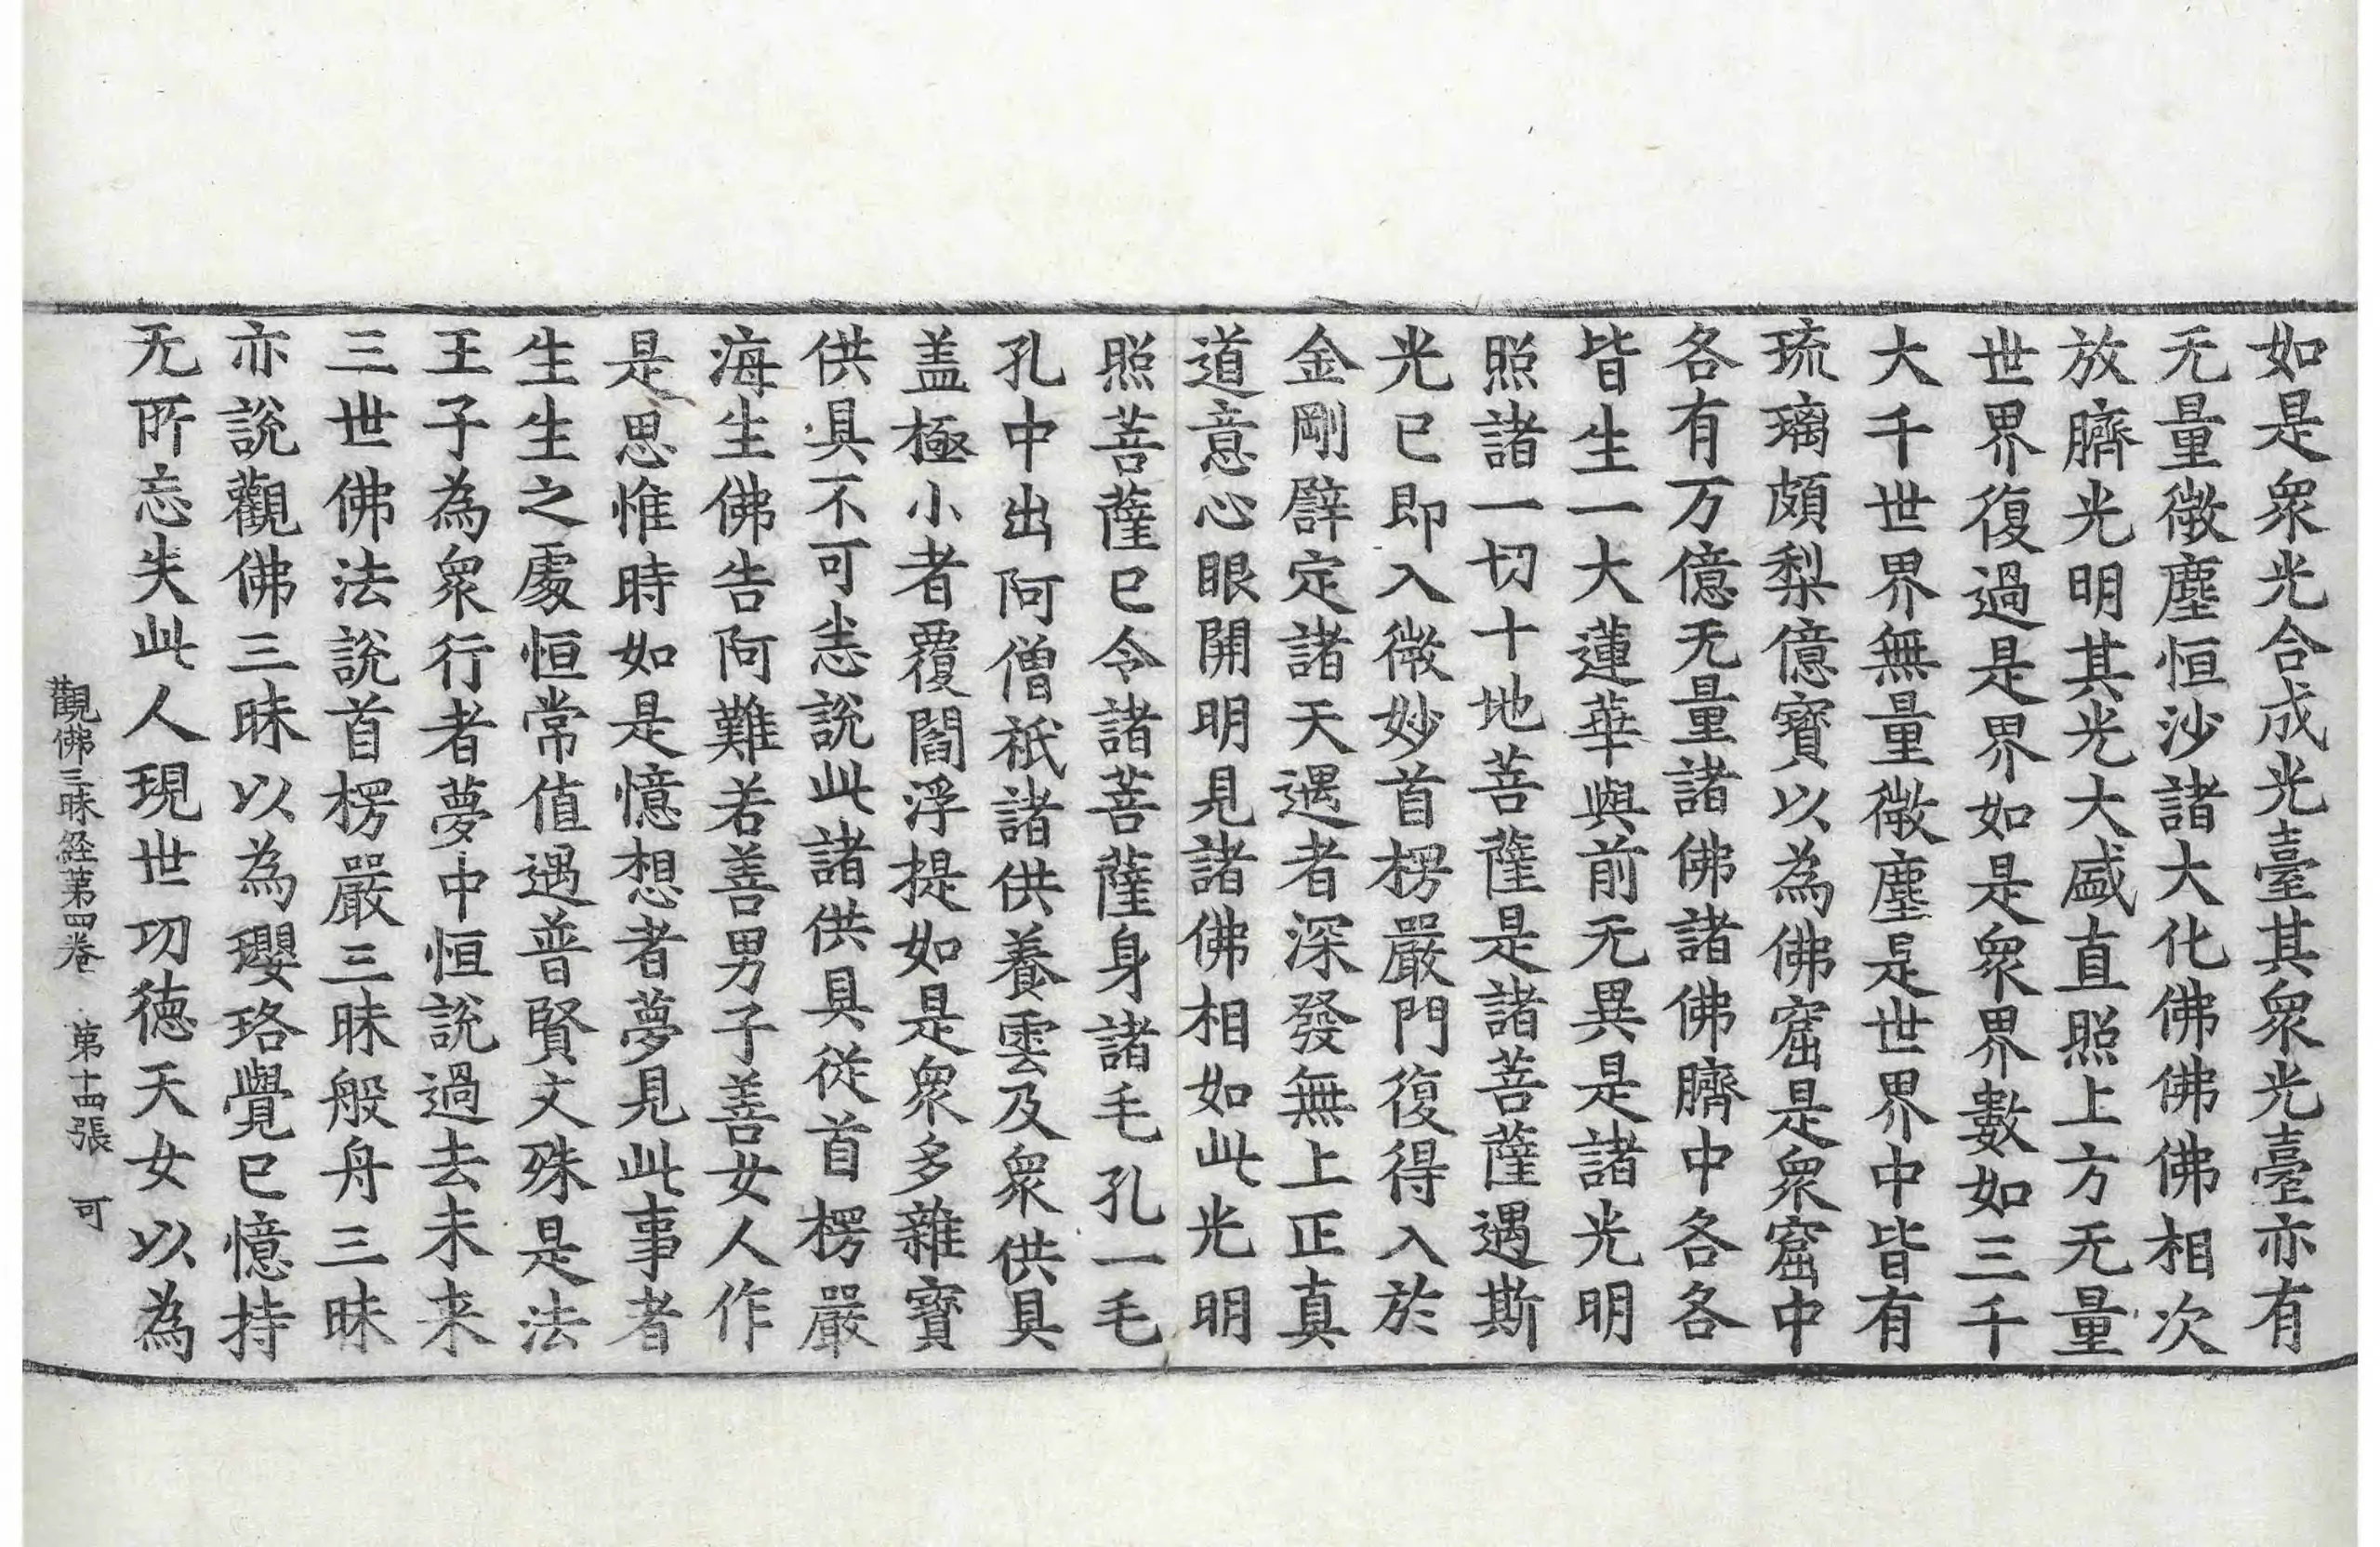 如是衆光合成光臺其衆光臺亦有
无量微塵恒沙諸大化佛佛佛相次
放臍光明其光大盛直照上方无量
世界復過是界如是衆界數如三千
大千世界無量微塵是世界中皆有
琉璃頗梨億寶以為佛窟是衆窟中
各有万億无量諸佛諸佛臍中各各
皆生一大蓮華與前无異是諸光明
照諸一切十地菩薩是諸菩薩遇斯
光已即入微妙首楞嚴門復得入於
金剛譬定諸天遇者深發無上正真
道意心眼開明見諸佛相如此光明
照菩薩已令諸菩薩身諸毛孔一毛
孔中出阿僧祇諸供養雲及衆供具
盖極小者覆閻浮提如是衆多雜寶
供具不可悉說此諸供具從首楞嚴
海生佛告阿難若善男子善女人作
是思惟時如是憶想者夢見此事者
生生之處恒常值遇普賢文殊是法
王子為衆行者夢中恒說過去未来
三世佛法說首楞嚴三昧般舟三昧
亦說觀佛三昧以為瓔珞覺已憶持
无所忘失此人現世功德天女以為
觀佛三昧経第四卷 第十四張 可